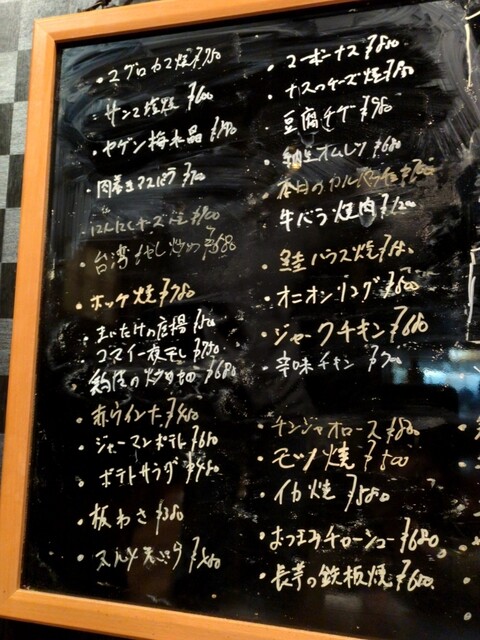 ・マグロカマ焼 ¥750
・サンマ塩焼 ¥600
・ヤゲン梅水晶
・肉巻きアスパラ ¥700
・にんにくチーズ焼 ¥600
・台湾もやし炒め ¥680
・ホッケ焼 ¥780
・まいたけの唐揚 ¥500
・コマイ一夜干し ¥750
・の炒め ¥680
・赤ウインナー ¥450
・ジャーマンポテト ¥650
・ポテトサラダ ¥450
・板わさ ¥380
・天ぷら
・Tーボーナス ¥580
・ナスのチーズ焼
・豆腐チゲ ¥980
・納豆オムレツ ¥680
・本日のカルパッチョ
・牛バラ焼肉 ¥1200
・鮭ハラス焼
・オニオンリング ¥500
・ジャークチキン ¥600
・辛味チキン ¥700
・チンジャオロース ¥880
・モツ焼 ¥500
・イカ焼 ¥580
・おつまみチャーシュー ¥680
・長芋の鉄板焼 ¥600